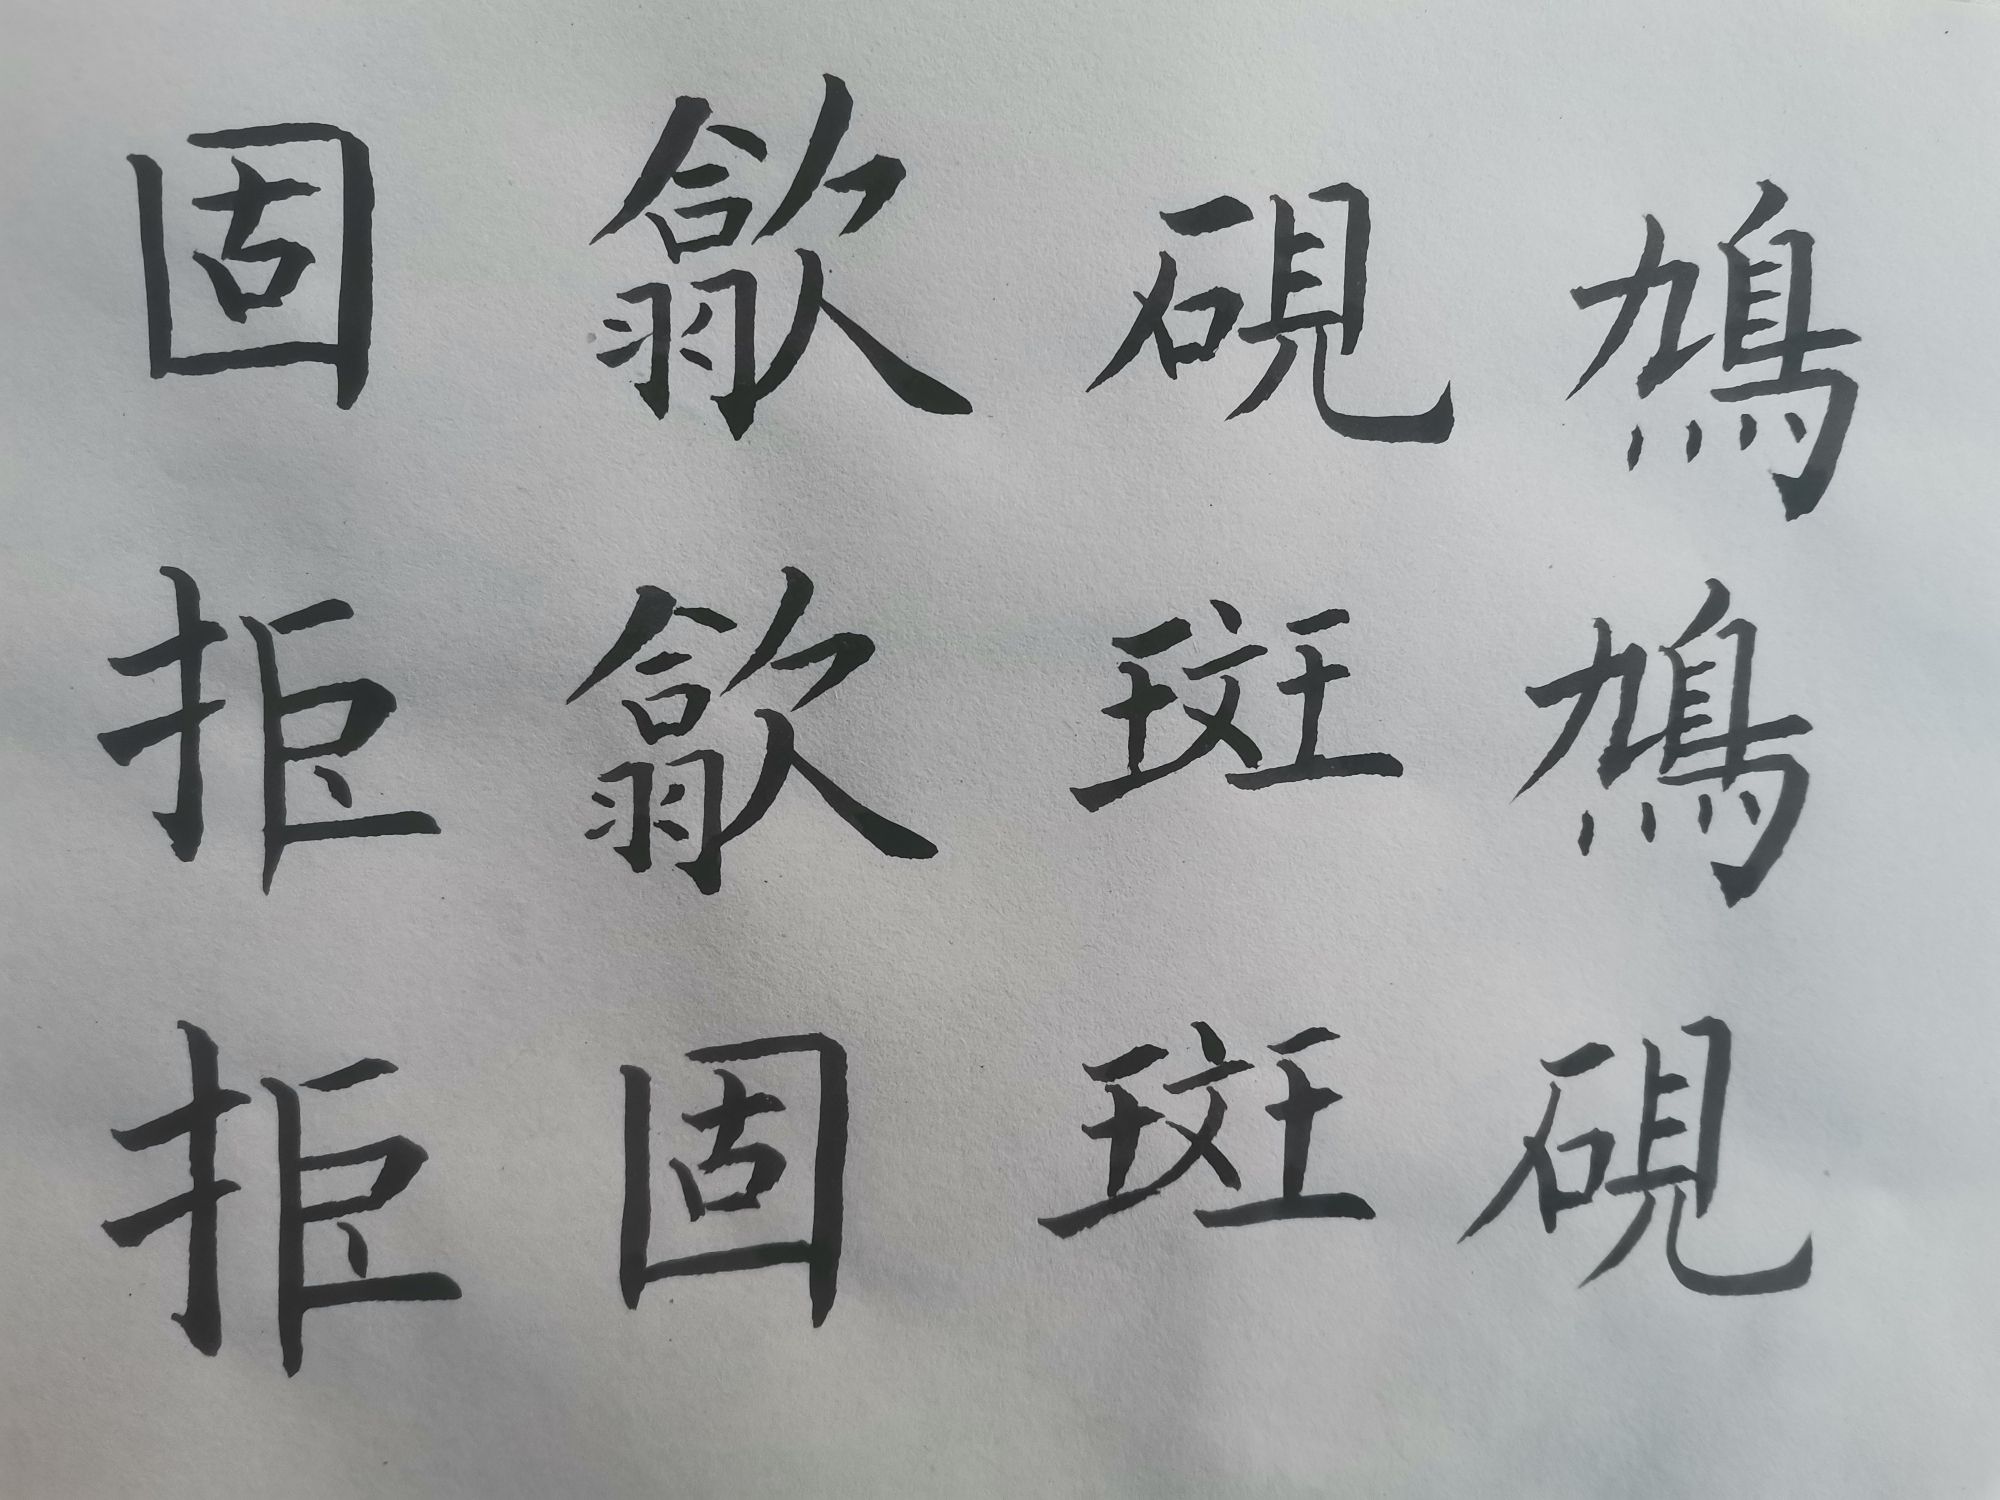 鳩鳩硯
硯斑斑
歙歙固
固拒拒